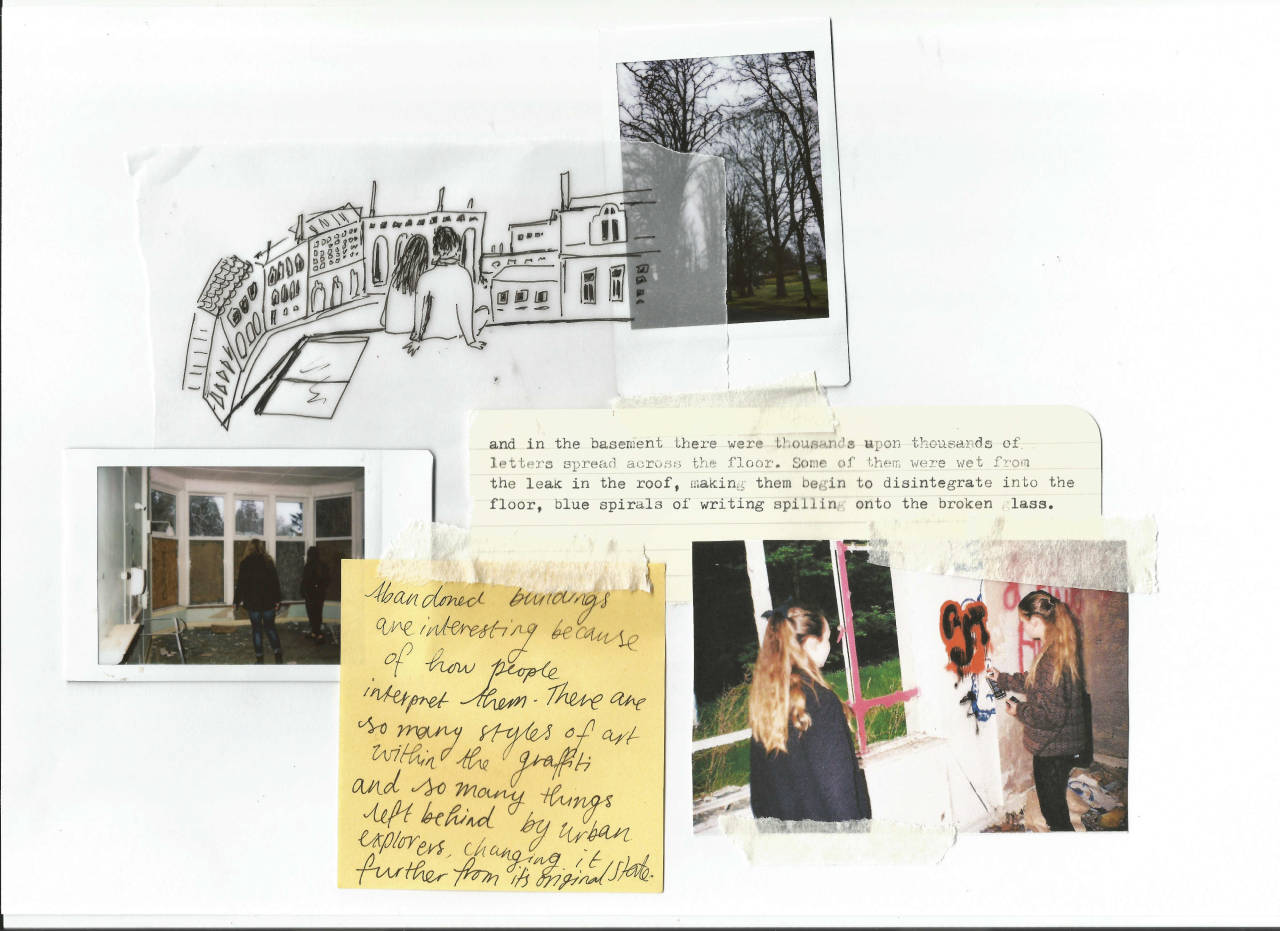 and in the basement there were thousands upon thousands of
letters spread across the floor. Some of them were wet from
the leak in the roof, making them begin to disintegrate into the
floor, blue spirals of writing spilling onto the broken glass.
Abandoned buildings
are interesting because
of how people
interpret them. There are
so many styles of art
within the graffiti
and so many things
left behind by urban
explorers, changing it
further from its original state.